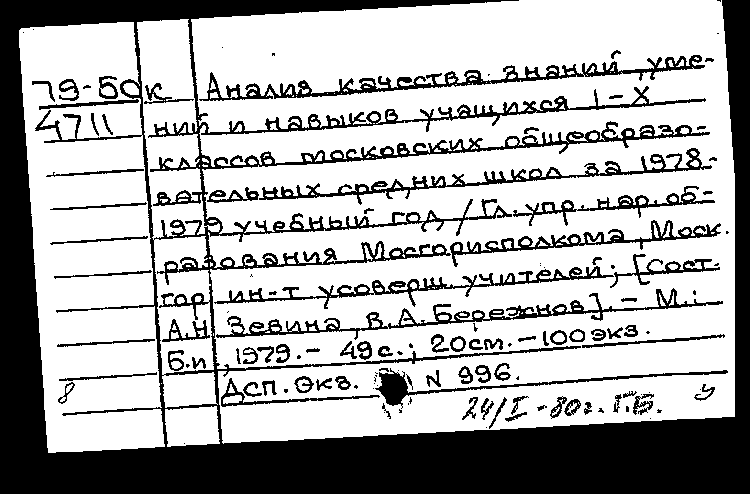 79-50к Анализ качества знаний, уме-
4711 ний и навыков учащихся I-X
классов московских общеобразо-
вательных средних школ за 1978-
1979 учебный год / Гл. упр. нар. об-
разования Мосгорисполкома, Моск.
гор ин-т усоверш. учителей; [Сост.
А.Н Зевина, В.А. Бережнов]. - М.:
Б.и, 1979. - 49 с.; 20 см. - 100 экз.
8 Дсп. Экз. N 996.
24/I-80г. Г.Б. У